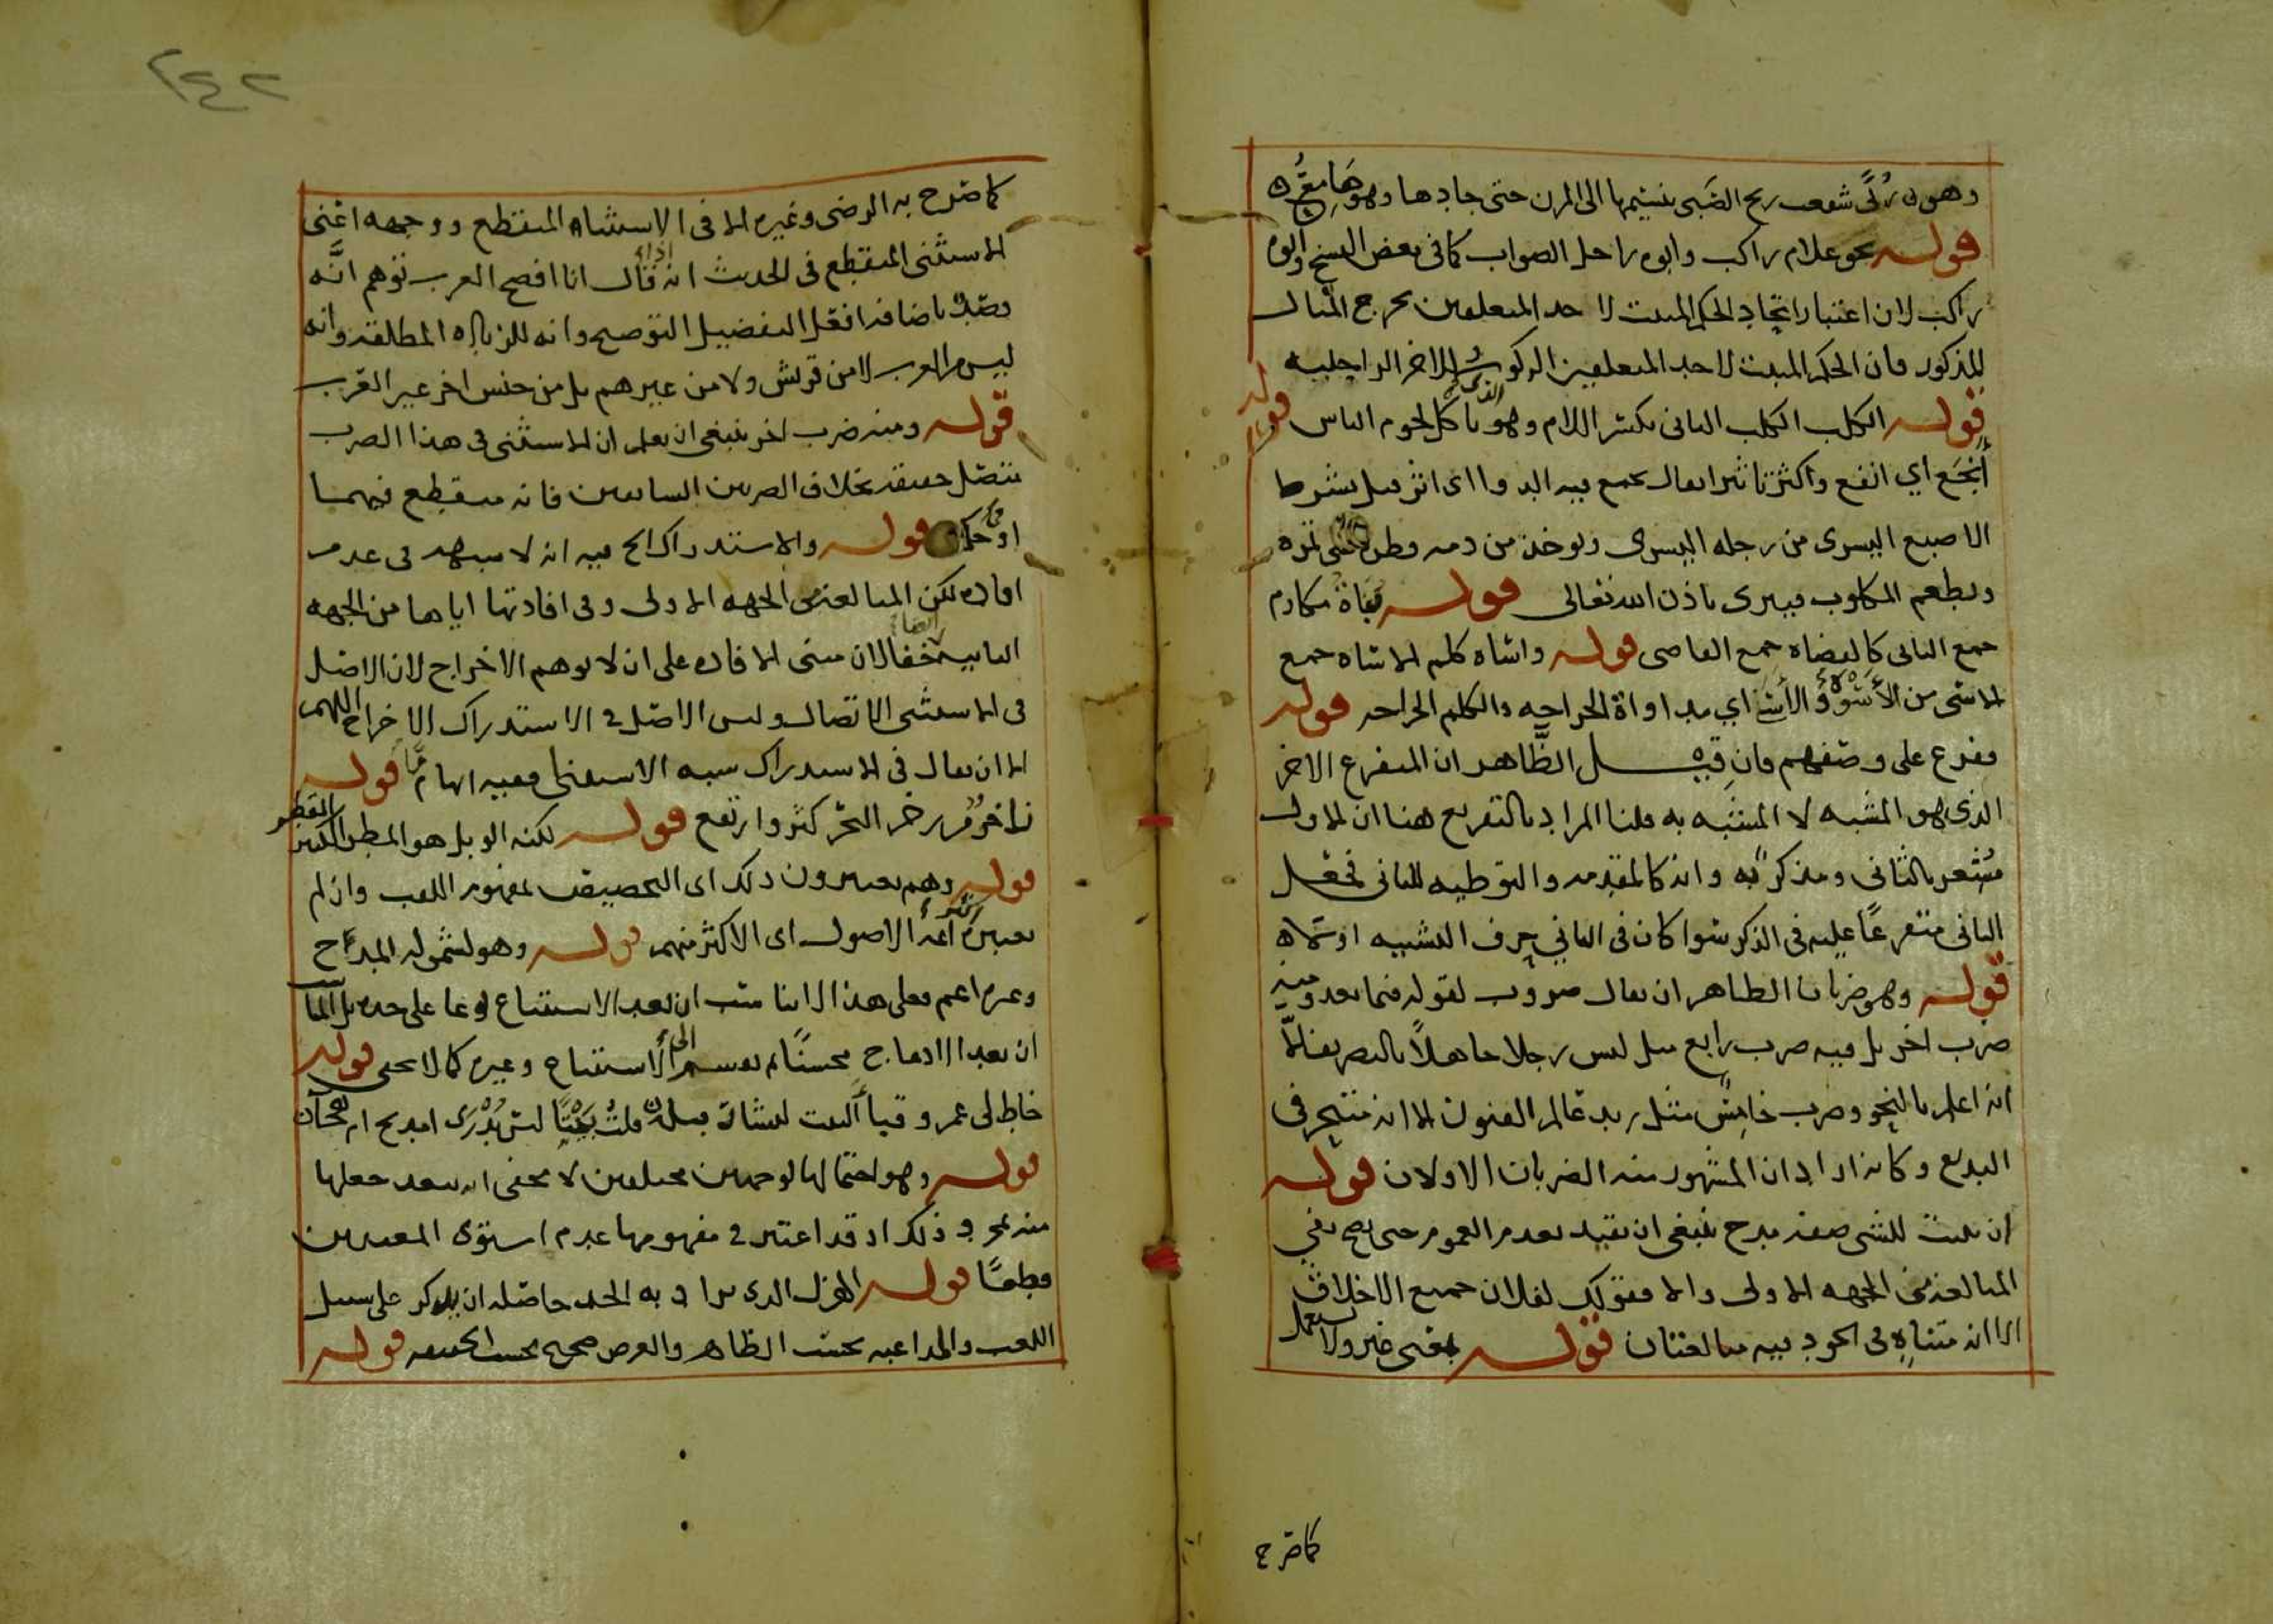 قوله نحو غلام راكب وابوه راحل الصواب كما في بعض النسخ وابوه
راكب لان اعتبار اتحاد الحكم المثبت لاحد المتعلقين يخرج المثال
المذكور فان الحكم المثبت لاحد المتعلقين الركوب وللاخر الراجلية
قوله الكلب الكلب الثاني بكسر اللام وهو الذي ياكل لحوم الناس قوله
أنجَع اي انفع واكثر تاثيرا يقال نجع فيه الدوا اي اثر قيل بشرط
الاصبع اليسرى من رجله اليسرى ويوخذ من دمه قطرة على تمرة
ويطعم المكلوب فيبرى باذن الله تعالى قوله بناة مكارم
جمع الباني كالقضاة جمع القاضي قوله واساه كلم الاساه جمع
الاسي من الأسو اي مداواة الجراحه والكلم الجراحه قوله
ففرع على وصفهم فان قيل الظاهر ان المتفرع الاخر
الذي هو المشبه لا المشبه به قلنا المراد بالتفريع هنا ان الاول
مُشعر بالثاني ومذكر به وانه كالمقدمه والتوطيه للثاني فجعل
الثاني متفرعًا عليه في الذكر سوا كان في الثاني حرف التشبيه او
قوله وهو ضربان الظاهر ان يقال ضروب لقوله فيما بعد ومنه
ضرب اخر بل فيه ضرب رابع مثل ليس رجلا جاهلاً بالنصريف الا
انه اعلم بالنحو وضرب خامس مثل زيد عالم الفنون الا انه متبحر في
البديع وكانه اراد ان المشهور منه الضربان الاولان قوله
ان يثبت للشي صفة مدح ينبغي ان تقيد بعدم العموم حتى يصح نفي
المبالغة من الجهه الاولى والا فقولك لفلان جميع الاخلاق
الا انه متناه في الجود فيه مبالغتان قوله بمعنى غير ولا يستعمل
كما صرح
٢٤٢
كما صرح به الرضى وغيره الا في الاستثناء المنقطع ووجهه اعنى
الاستثنى المنقطع في الحديث انه اذا قال انا افصح العرب توهم انَّه
قصد باضافة افعل التفضيل التوضيح وانه للزياده المطلقة وانه
ليس من العرب لا من قريش ولا من غيرهم بل من جنس اخر غير العرب
قوله ومنه ضرب اخر ينبغي ان يعلم ان الاستثنى في هذا الضرب
متصل حقيقة بخلاف الضربين السابقين فانه منقطع فيهما
او حكما قوله والاستدراك الخ فيه انه لا شبهه في عدم
افاده لكن المبالغة من الجهه الاولى وفي افادتها اياها من الجهه
الثانيه ايضا خفا لان مبنى الافاده على ان لا يوهم الاخراج لان الاصل
في الاستثنى الاتصال وليس الاصل في الاستدراك الاخراج اللهم
الا ان يقال في الاستدراك شبه الاستثنا ففيه ايهام ما قوله
زاخر من زخر البحر كثر وارتفع قوله لكنه الوبل هو المطر الكثير القطر
قوله وهم يعتبرون ذلك اى التخصيص بمفهوم اللقب وان لم
يعتبره اكثر أئمة الاصول اى الاكثر منهم قوله وهو لشموله المدح
وغيره اعم فعلى هذا لا يناسب ان يعد الاستتباع نوعا على حده بل
ان يعد الادماج محسنًا ثم يقسم الى الاستتباع وغيره كما لا يخفى قوله
خاط لى عمرو قبا
قوله وهو احتمالها لوجهين مختلفين لا يخفى انه يبعد جعلها
منه بمجرد ذلك اذ قد اعتبر في مفهومها عدم استوى المعنيين
قطعًا قوله الهزل الذى يراد به الجد حاصله ان يذكر على سبيل
اللعب والمداعبه بحسب الظاهر والغرض صحيح بحسب الحقيقه قوله